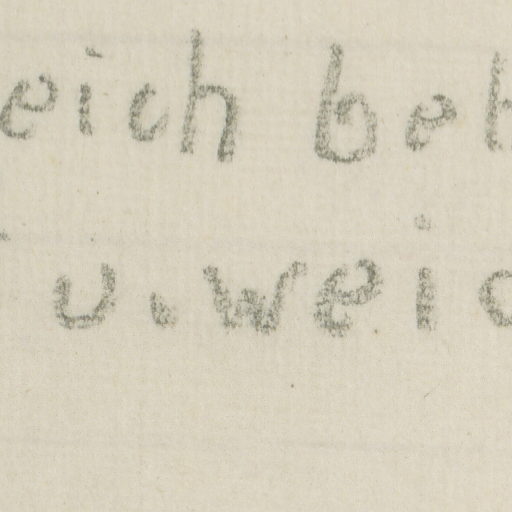 eich beh
u. weic